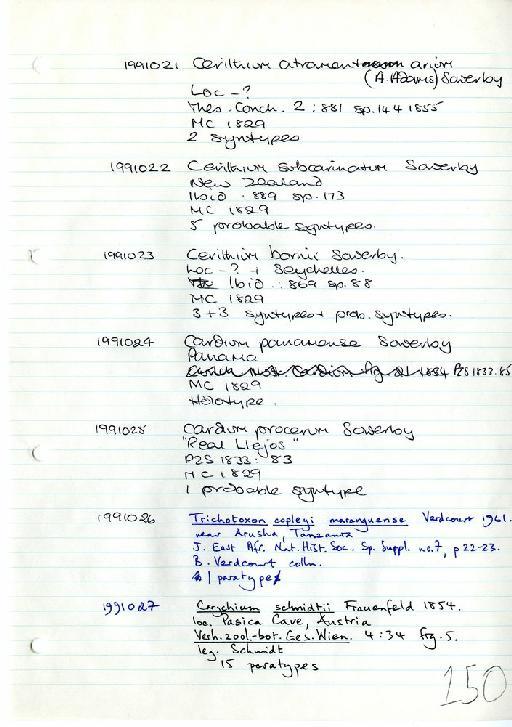 1991021 Cerithium atramentarium
(A. Adams) Sowerby
Loc - ?
Thes. Conch. 2 : 881 sp. 144 1855
MC 1829
2 syntypes
1991022 Cerithium subcarinatum Sowerby
New Zealand
Ibid . 889 sp. 173
MC 1829
5 probable syntypes.
1991023 Cerithium bornii Sowerby.
Loc - ? + Seychelles.
Ibid : 869 sp. 88
MC 1829
3 + 3 syntypes + prob. syntypes.
1991024 Cardium panamense Sowerby
Panama
1834 PZS 1833.85
MC 1829
Holotype.
1991025 Cardium procerum Sowerby
"Real Llejos"
PZS 1833: 83
MC 1829
1 probable syntype
1991026 Trichotoxon copleyi maranguense Verdcourt 1961.
near Arusha, Tanzania
J. East Afr. Nat. Hist. Soc. Sp. Suppl. no. 7, p 22-23.
B. Verdcourt colln.
1 paratype
1991027 Carychium schmidtii Frauenfeld 1854.
loc. Pasica Cave, Austria
Verh. zool.-bot. Ges. Wien. 4:34 fig. 5.
leg. Schmidt
15 paratypes
150